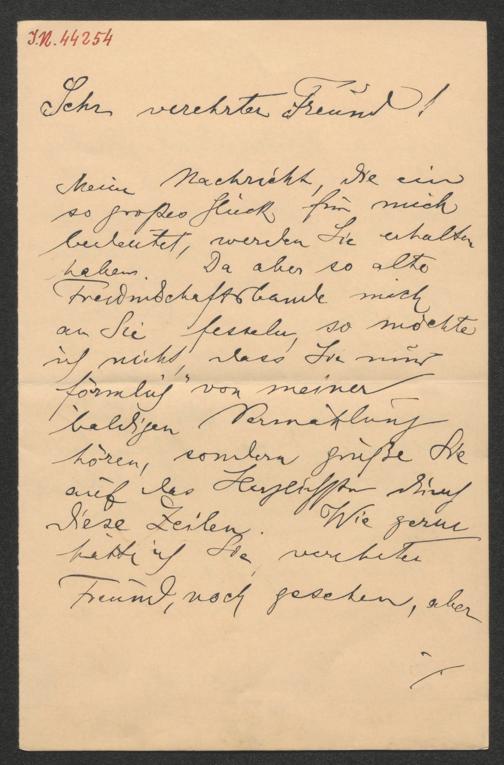 J.N. 44254
Sehr verehrter Freund!
Meine Nachricht, die ein
so großes Glück für mich
bedeutet, werden Sie erhalten
haben. Da aber so alte
Freundschaftsbande mich
an Sie fesseln, so möchte
ich nicht, dass Sie nur
„förmlich" von meiner
baldigen Vermählung
hören, sondern grüße Sie
auf das Herzlichste durch
diese Zeilen. Wie gerne
hätte ich Sie, verehrter
Freund, noch gesehen, aber
./.